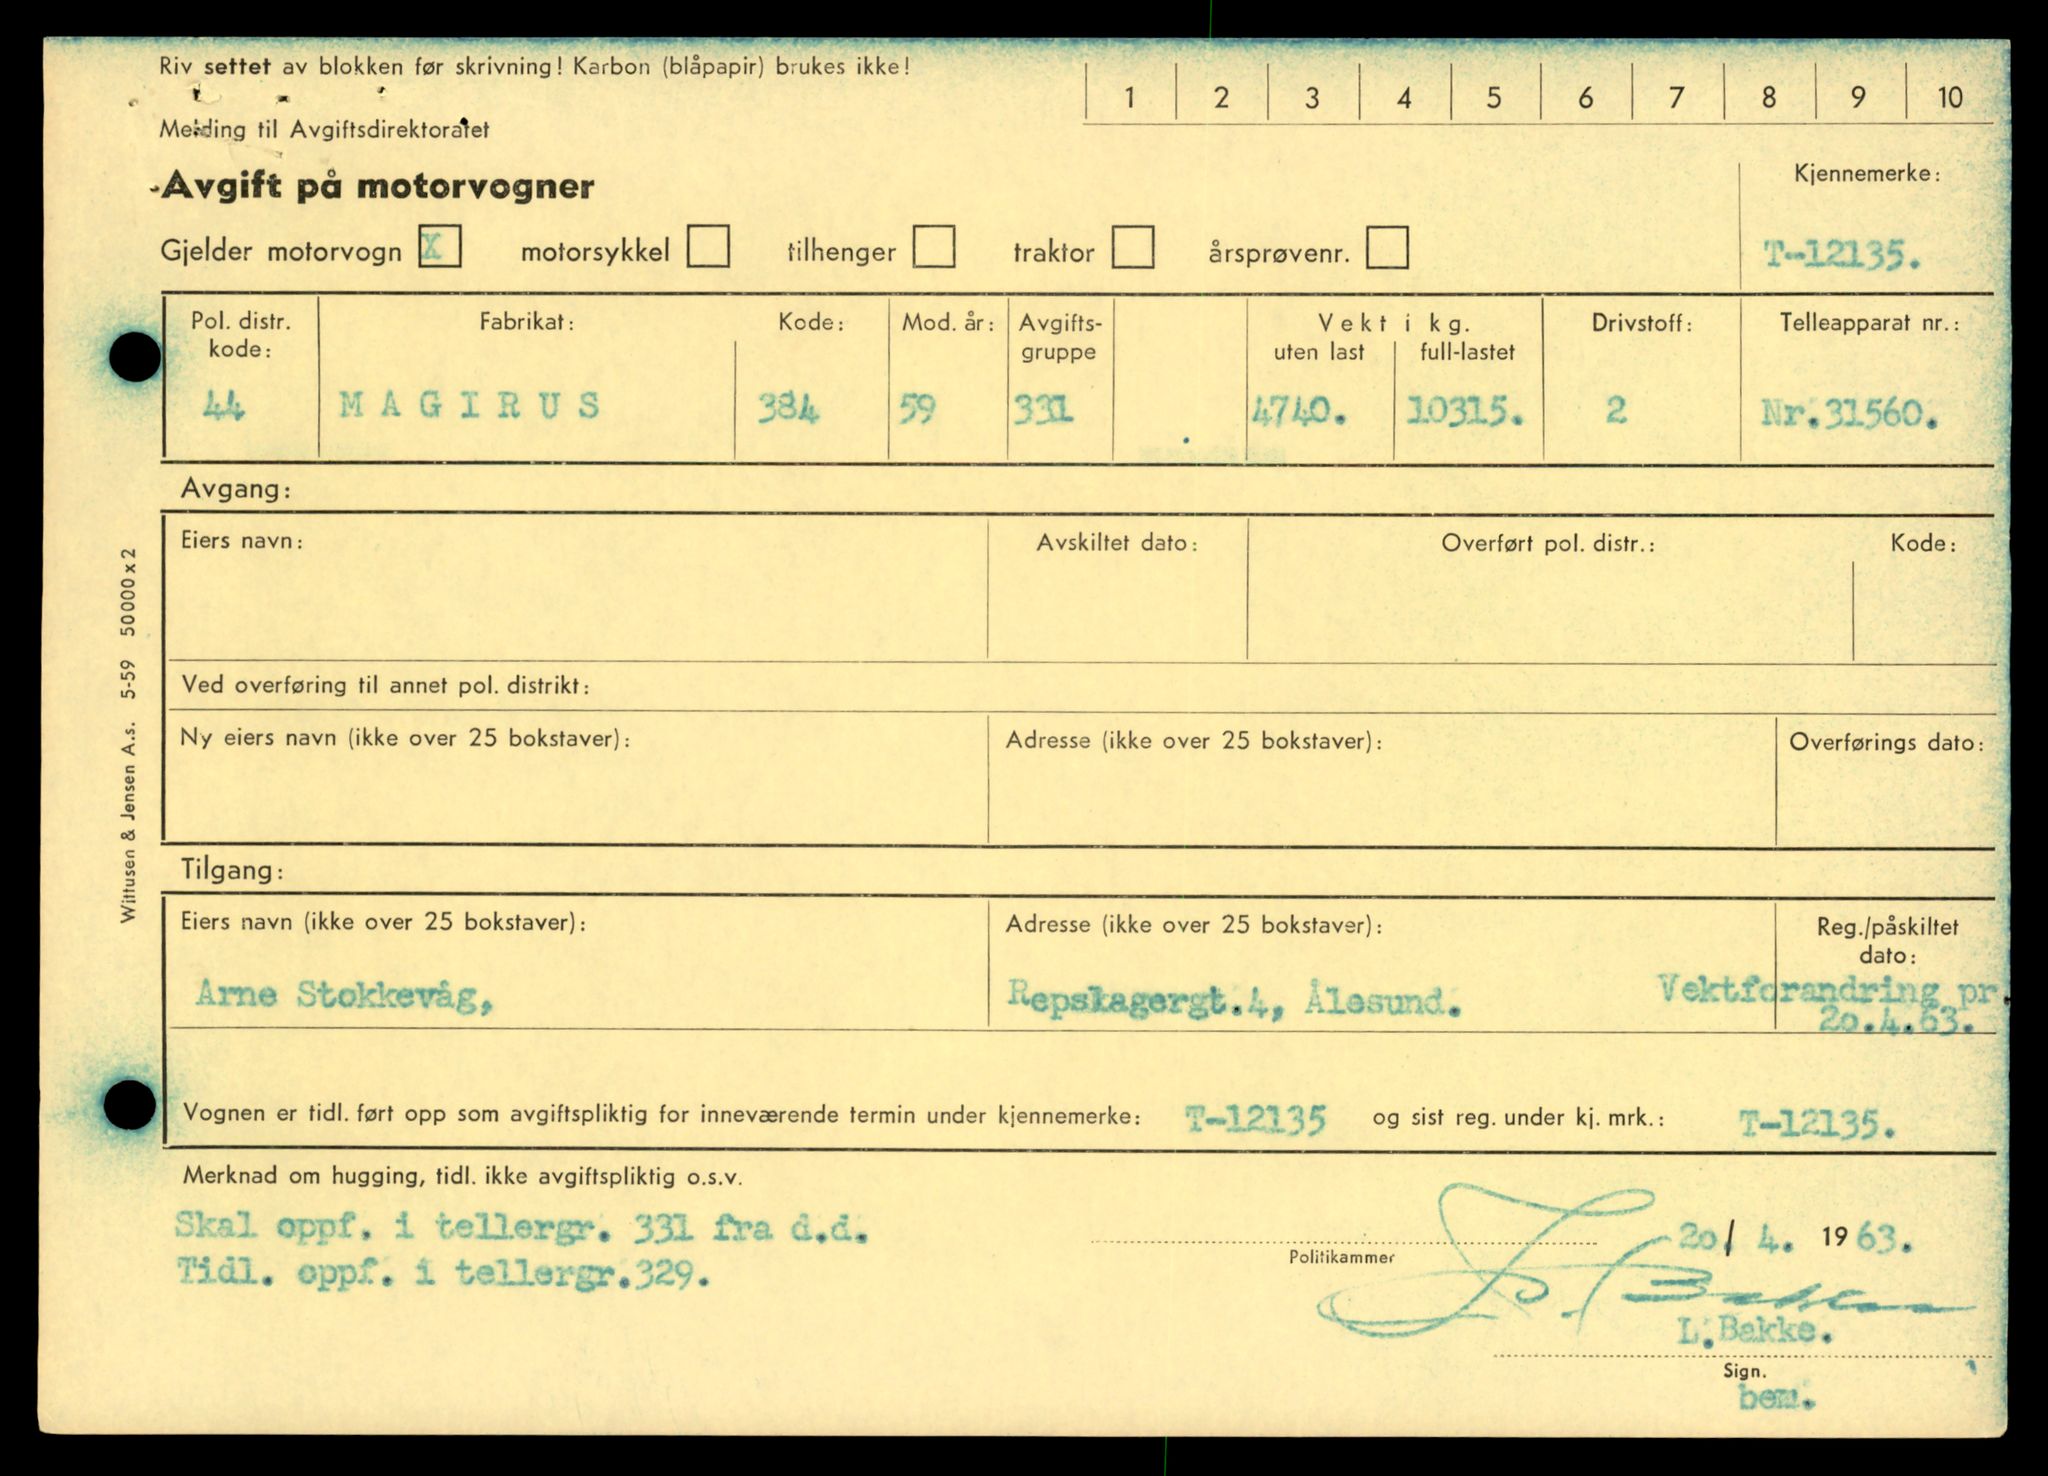 Riv settet av blokken før skrivning! Karbon (blåpapir) brukes ikke!
1 2 3 4 5 6 7 8 9 10
Melding til Avgiftsdirektoratet
Avgift på motorvogner
Kjennemerke:
Gjelder motorvogn X motorsykkel tilhenger traktor årsprøvenr.
T-12135.
Pol. distr. kode: Fabrikat: Kode: Mod. år: Avgifts-gruppe Vekt i kg. uten last full-lastet Drivstoff: Telleapparat nr.:
44 MAGIRUS 384 59 331 4740. 10315. 2 Nr.31560.
Avgang:
Eiers navn: Avskiltet dato: Overført pol. distr.: Kode:
Ved overføring til annet pol. distrikt:
Ny eiers navn (ikke over 25 bokstaver): Adresse (ikke over 25 bokstaver): Overførings dato:
Tilgang:
Eiers navn (ikke over 25 bokstaver): Adresse (ikke over 25 bokstaver): Reg./påskiltet dato:
Arne Stokkevåg, Repslagergt.4, Ålesund. Vektforandring pr.
20.4.63.
Vognen er tidl. ført opp som avgiftspliktig for inneværende termin under kjennemerke: T-12135 og sist reg. under kj. mrk.: T-12135.
Merknad om hugging, tidl. ikke avgiftspliktig o.s.v.
Skal oppf. i tellergr. 331 fra d.d.
Tidl. oppf. i tellergr.329.
20/ 4. 1963.
Politikammer
L. Bakke.
Sign.
bem.
Wittusen & Jensen A.s. 5-59 50000 x 2